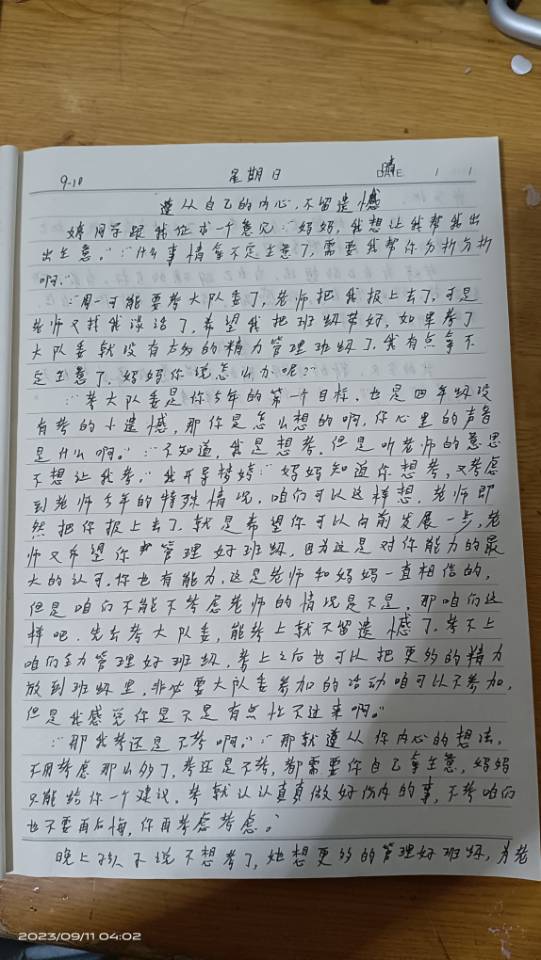 9.10 星期日 晴 DATE
遵从自己的内心,不留遗憾
婷同学跟我征求一个意见:“妈妈,我想让我帮我出
出主意。”“什么事情拿不定主意了,需要我帮你分析分析
啊。”
“周一可能要考大队委了,老师把我报上去了,可是
老师又找我谈话了,希望我把班级带好,如果考了
大队委就没有太多的精力管理班级了,我有点拿不
定主意了,妈妈你说怎么办呢?”
“考大队委是你今年的第一个目标,也是四年级没
有考的小遗憾,那你是怎么想的啊,你心里的声音
是什么啊。”“不知道,我是想考,但是听老师的意思
不想让我考。”我开导婷婷:“妈妈知道你想考,又考虑
到老师今年的特殊情况,咱们可以这样想,老师即
然把你报上去了,就是希望你可以向前发展一步,老
师又希望你管理好班级,因为这是对你能力的最
大的认可,你也有能力,这是老师和妈妈一直相信的,
但是咱们不能不考虑老师的情况是不是,那咱们这
样吧,先去考大队委,能考上就不留遗憾了,考不上
咱们全力管理好班级,考上之后也可以把更多的精力
放到班级里,非必要大队委参加的活动咱可以不参加,
但是我感觉你是不是有点忙不过来啊。”
“那我考还是不考啊。”“那就遵从你内心的想法,
不用考虑那么多了,考还是不考,都需要你自己拿主意,妈妈
只能给你一个建议,考就认认真真做好份内的事,不考咱们
也不要再后悔,你再考虑考虑。”
晚上孩子说不想考了,她想更多的管理好班级,为老
2023/09/11 04:02